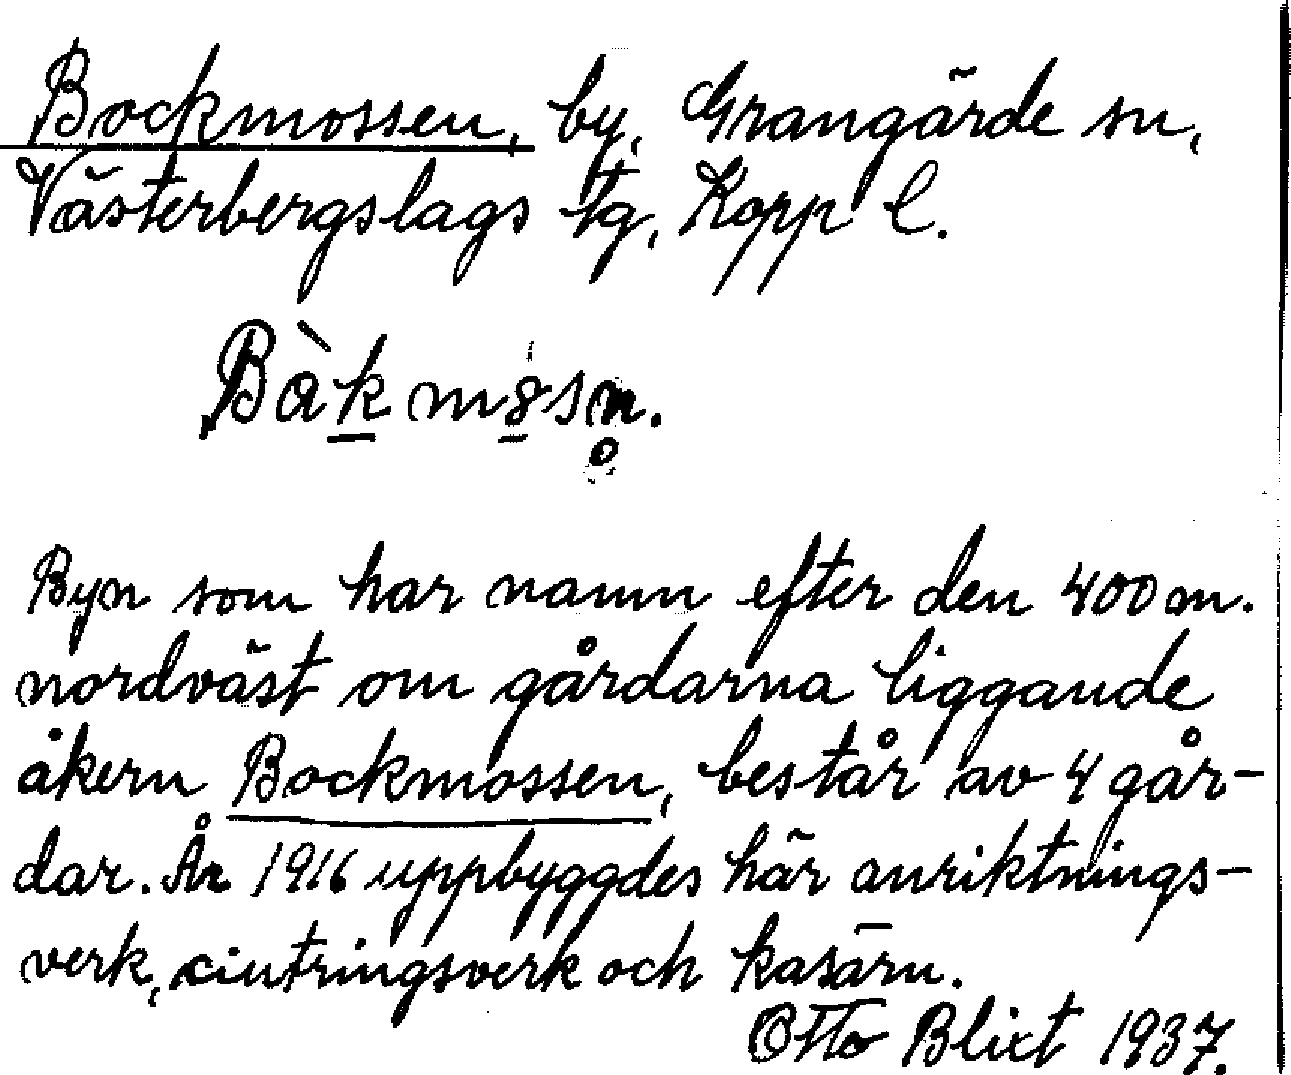 Bockmossen, by, Grangärde sn,
Västerbergslags tg, Kopp l.
Bàk mosn̥.
Byn som har namn efter den 400 m.
nordväst om gårdarna liggande
åkern Bockmossen, består av 4 går-
dar. År 1916 uppbyggdes här anriktnings-
verk, cintringsverk och kasärn.
Otto Blixt 1937.